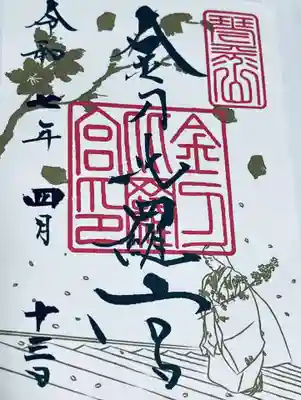 金刀比羅宮
金刀
比羅
宮印
令和七年 四月 十三日